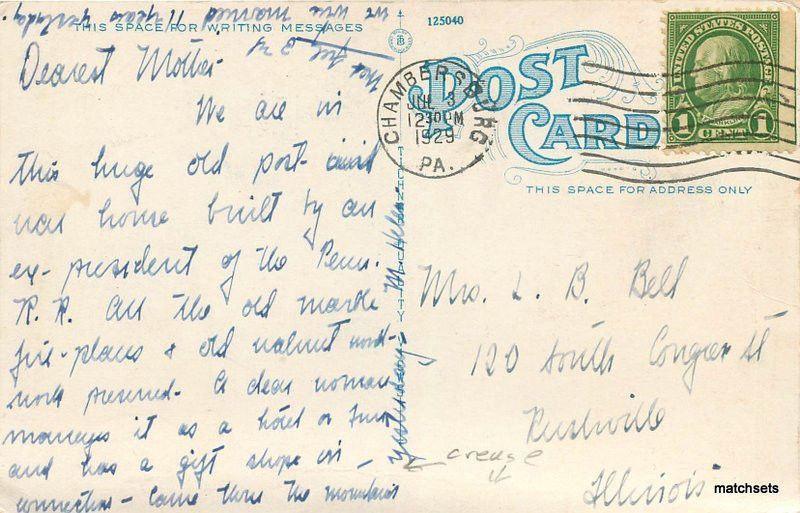 THIS SPACE FOR WRITING MESSAGES
Dearest Mother -
We are in
this huge old post-civil
war home built by an
ex-president of the Penn.
R.R. All the old marble
fire-places & old walnut wood-
work preserved. A dear woman
manages it as a hotel or Inn
and has a gift shop in
connection - Came thru the mountains
yesterday - M. Helen
we were married 11 years yesterday.
TICHNOR QUALITY
125040
POST
CARD
CHAMBERSBURG
JUL 3
1230PM
1929
PA.
UNITED STATES POSTAGE
FRANKLIN
1 CENT 1
THIS SPACE FOR ADDRESS ONLY
Mrs. L. B. Bell
120 South Congress St
Rushville
Illinois
crease
matchsets